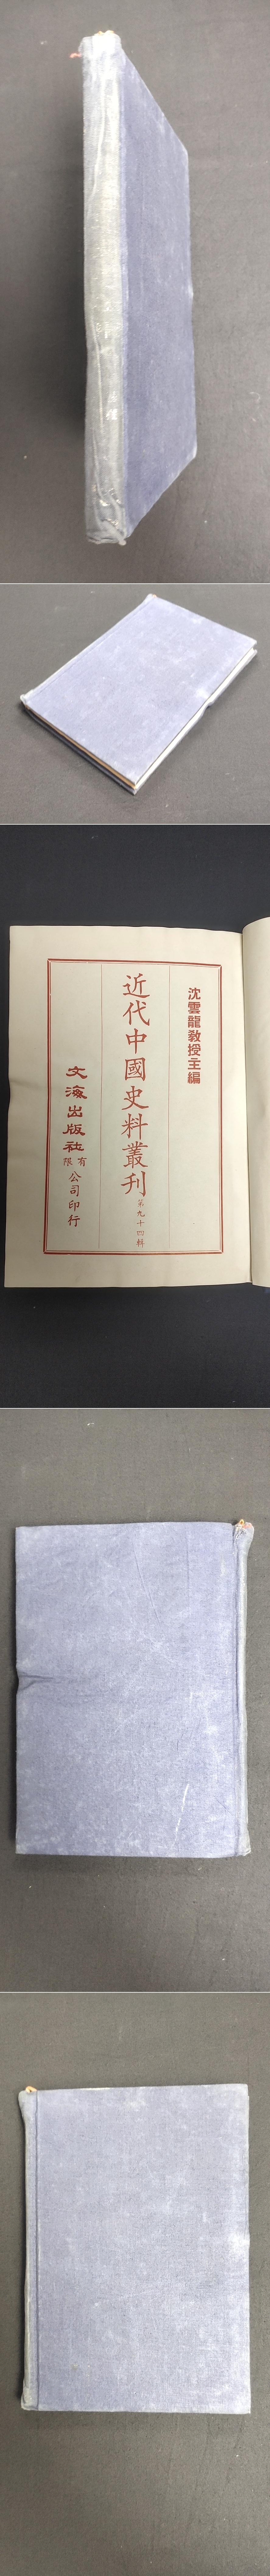 沈雲龍教授主編
近代中國史料叢刊 第九十四輯
文海出版社有限公司印行